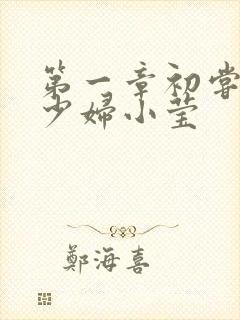 第一章初尝
少婦小莹
鄭海喜